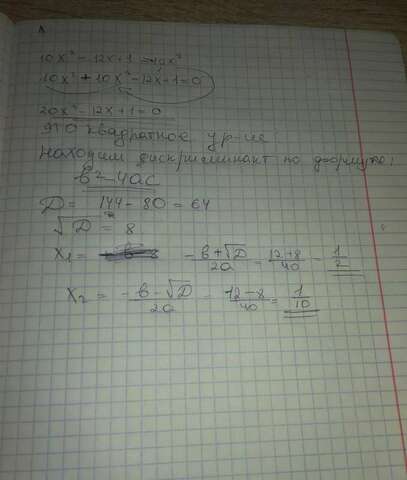 10x² - 12x + 1 = -10x²
10x² + 10x² - 12x + 1 = 0
20x² - 12x + 1 = 0
это квадратное ур-ие
находим дискриминант по формуле:
в² - 4ac
D = 144 - 80 = 64
√D = 8
x₁ = -в+√D/2a = 12+8/40 = 1/2
x₂ = -в-√D/2a = 12-8/40 = 1/10